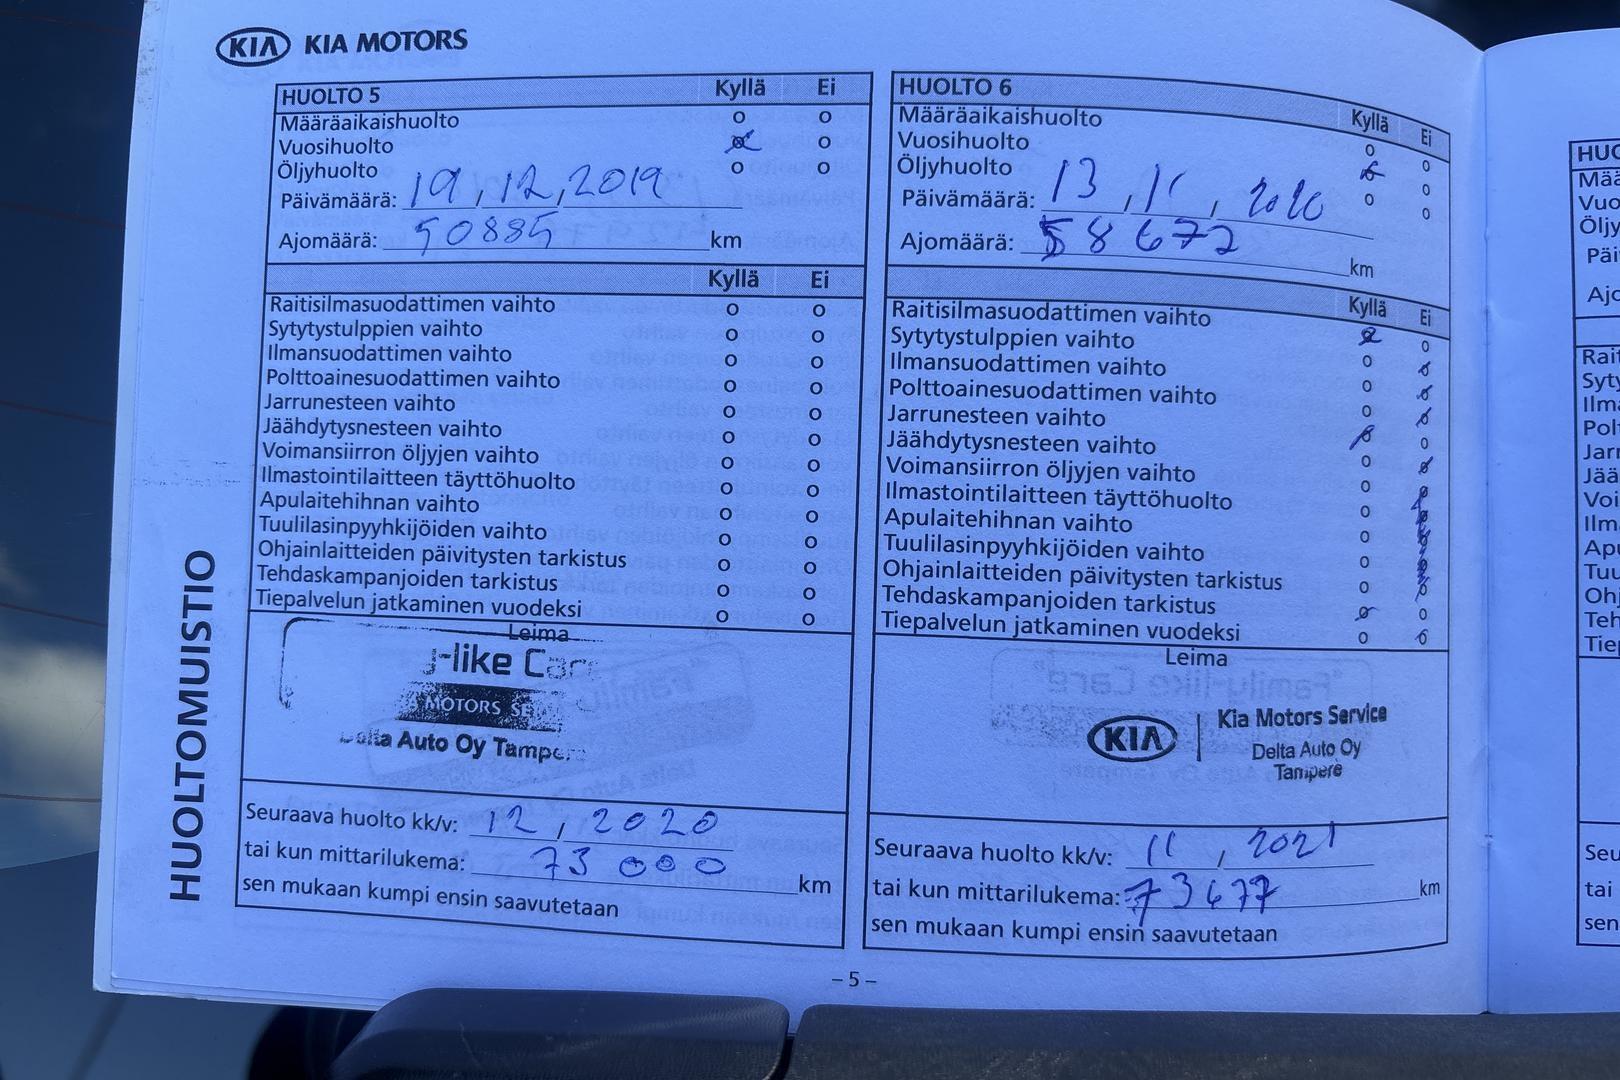 KIA KIA MOTORS
HUOLTOMUISTIO
HUOLTO 5 Kyllä Ei
Määräaikaishuolto o o
Vuosihuolto o
Öljyhuolto o o
Päivämäärä: 19,12,2019
Ajomäärä: 50885 km
Kyllä Ei
Raitisilmasuodattimen vaihto o o
Sytytystulppien vaihto o o
Ilmansuodattimen vaihto o o
Polttoainesuodattimen vaihto o o
Jarrunesteen vaihto o o
Jäähdytysnesteen vaihto o o
Voimansiirron öljyjen vaihto o o
Ilmastointilaitteen täyttöhuolto o o
Apulaitehihnan vaihto o o
Tuulilasinpyyhkijöiden vaihto o o
Ohjainlaitteiden päivitysten tarkistus o o
Tehdaskampanjoiden tarkistus o o
Tiepalvelun jatkaminen vuodeksi o o
Leima
y-like Care
MOTORS SE
Delta Auto Oy Tampere
Seuraava huolto kk/v: 12, 2020
tai kun mittarilukema: 73 000 km
sen mukaan kumpi ensin saavutetaan
HUOLTO 6 Kyllä Ei
Määräaikaishuolto o o
Vuosihuolto o
Öljyhuolto o o
Päivämäärä: 13, 11, 2020
Ajomäärä: 58672 km
Kyllä Ei
Raitisilmasuodattimen vaihto o
Sytytystulppien vaihto o
Ilmansuodattimen vaihto o
Polttoainesuodattimen vaihto o
Jarrunesteen vaihto o
Jäähdytysnesteen vaihto o
Voimansiirron öljyjen vaihto o
Ilmastointilaitteen täyttöhuolto o
Apulaitehihnan vaihto o
Tuulilasinpyyhkijöiden vaihto o
Ohjainlaitteiden päivitysten tarkistus o
Tehdaskampanjoiden tarkistus o
Tiepalvelun jatkaminen vuodeksi o
Leima
KIA | Kia Motors Service
Delta Auto Oy
Tampere
Seuraava huolto kk/v: 11, 2021
tai kun mittarilukema: 73677 km
sen mukaan kumpi ensin saavutetaan
– 5 –
HUO
Mää
Vuo
Öljy
Päi
Ajo
Rait
Syty
Ilma
Pol
Jarr
Jää
Voi
Ilm
Apu
Tuu
Ohj
Teh
Tie
Seu
tai
sen